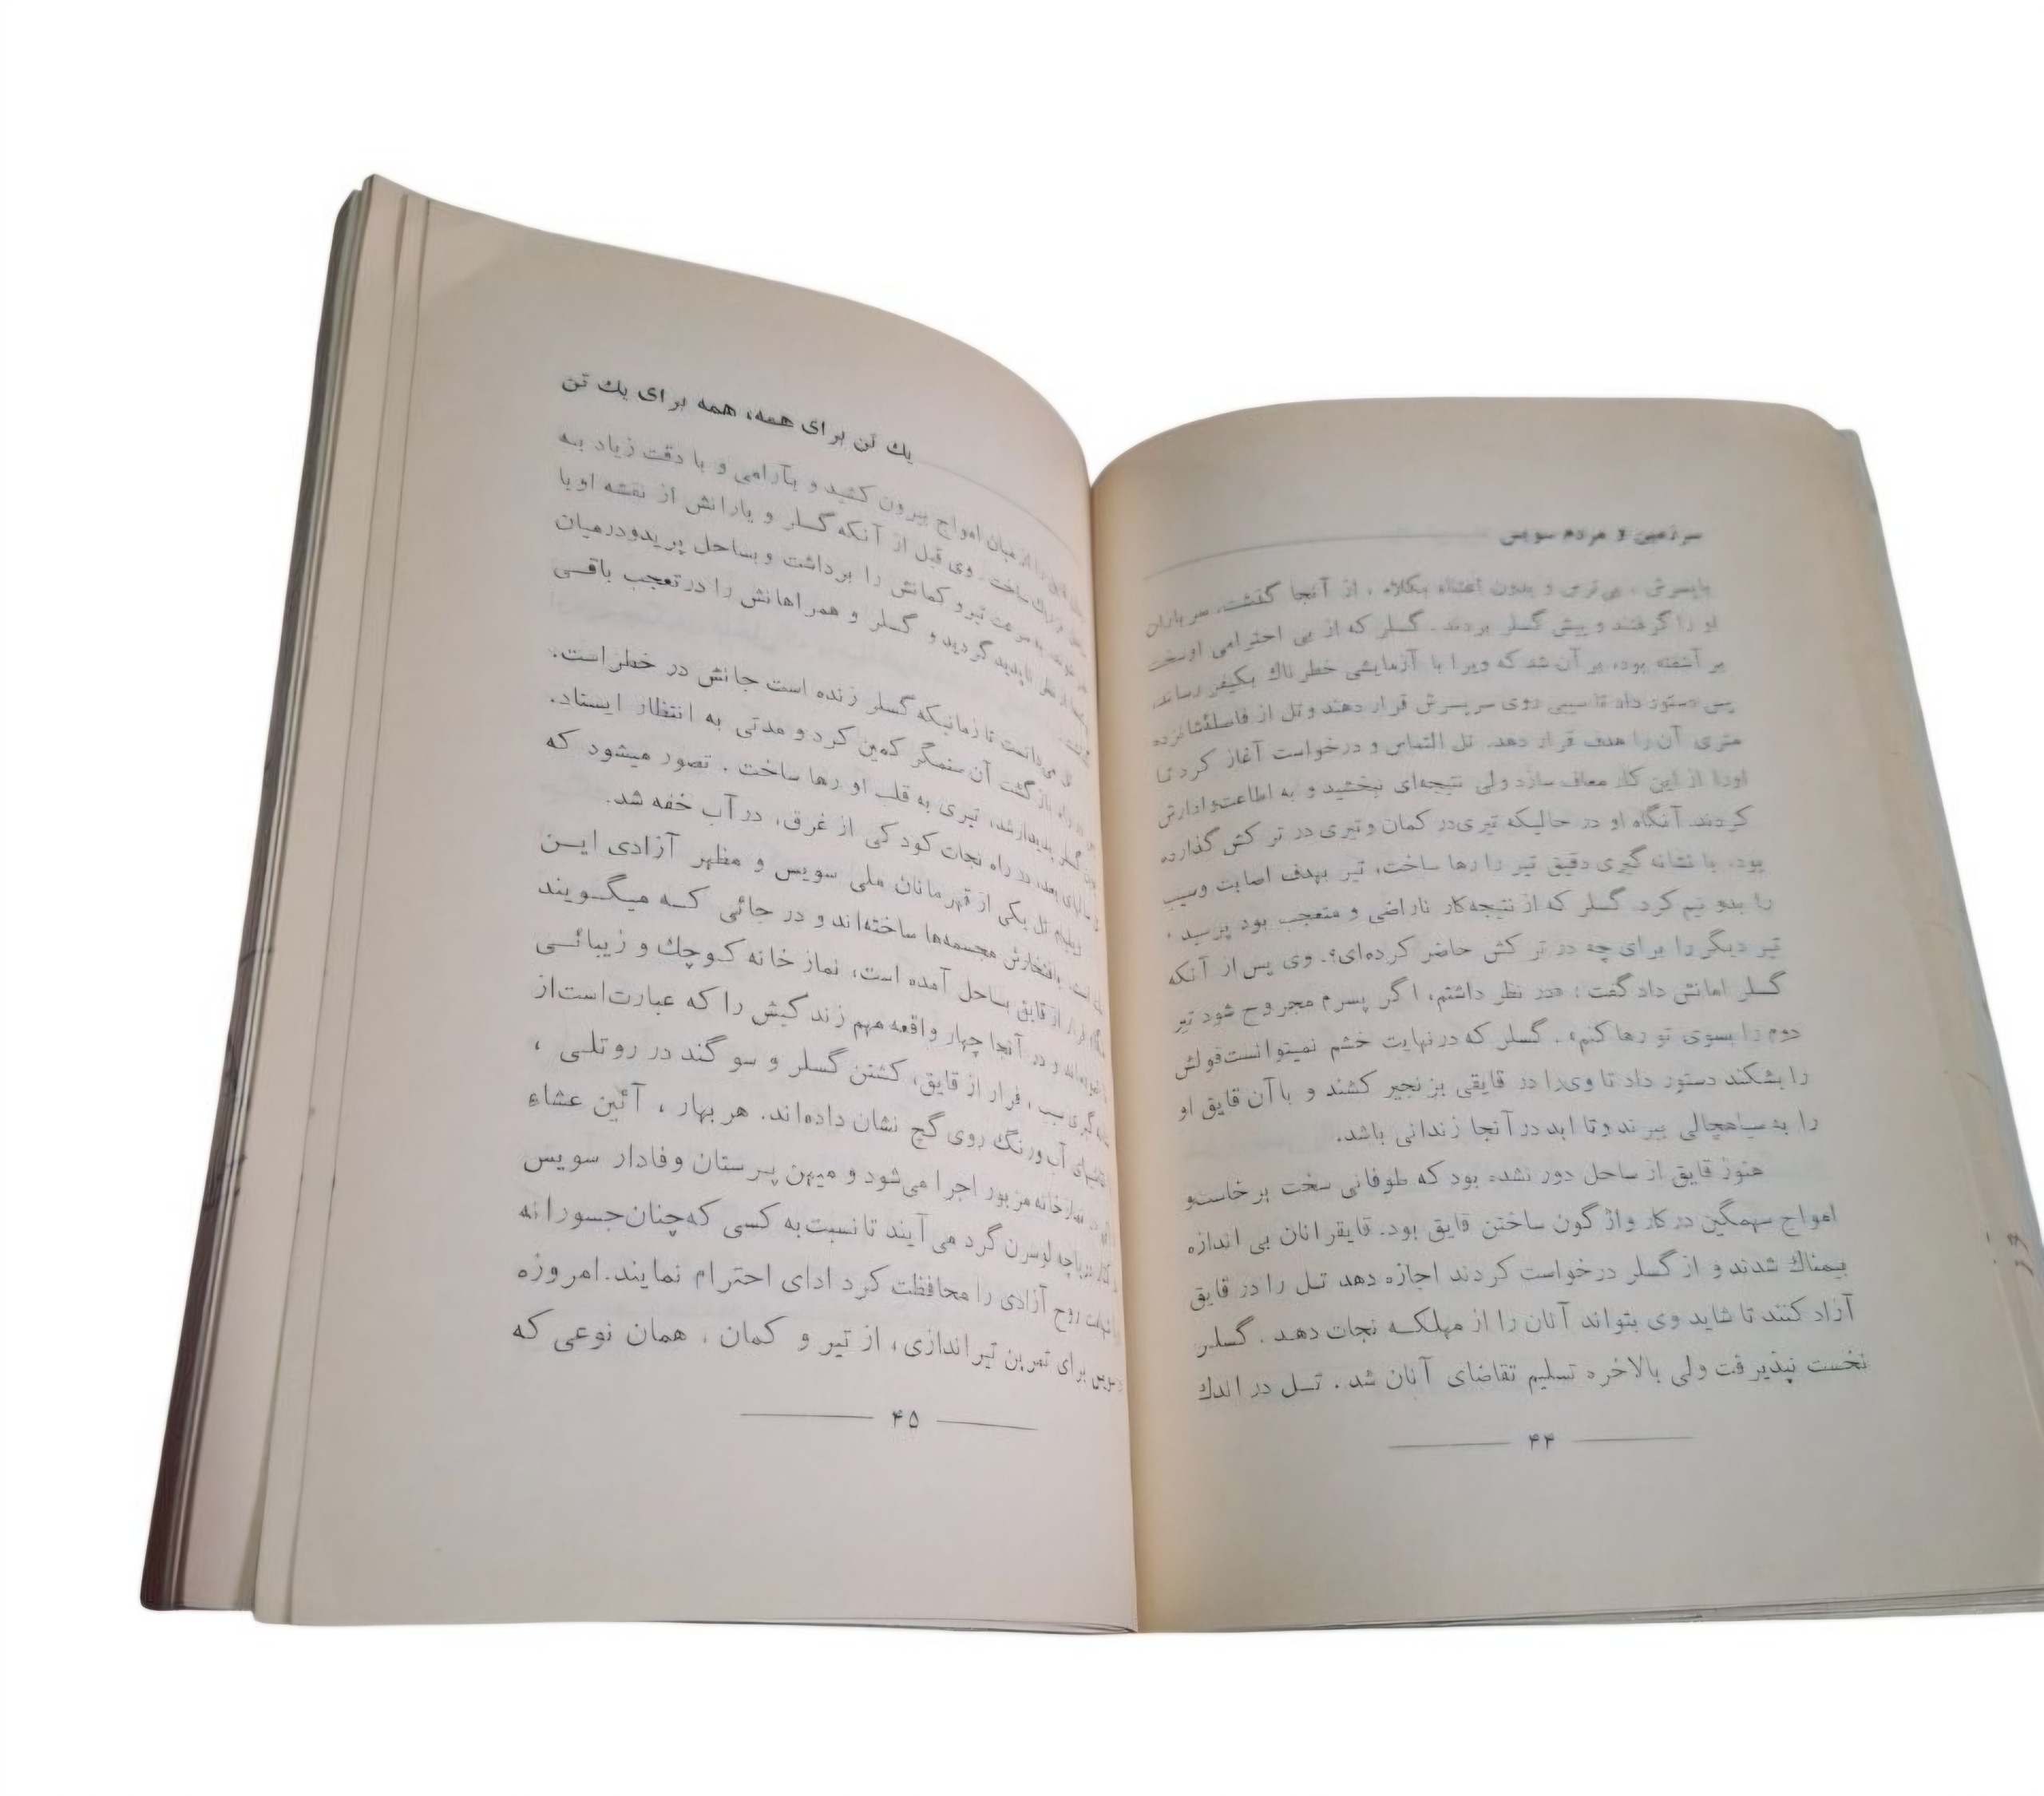 سرزمین و مردم سویس
باپسرش ، بی‌ترس و بدون اعتناء بکلاه ، از آنجا گذشت. سربازان
او را گرفتند و پیش گسلر بردند. گسلر که از بی احترامی او سخت
بر آشفته بود، بر آن شد که ویرا با آزمایشی خطر ناك بکیفر رساند،
پس دستور داد تا سیبی روی سر پسرش قرار دهند و تل از فاصلهٔ شانزده
متری آن را هدف قرار دهد. تل التماس و درخواست آغاز کرد تا
اورا از این کار معاف سازد ولی نتیجه‌ای نبخشید و به اطاعت وادارش
کردند. آنگاه او در حالیکه تیری در کمان و تیری در تر کش گذارده
بود، با نشانه گیری دقیق تیر را رها ساخت، تیر بهدف اصابت وسیب
را بدو نیم کرد. گسلر که از نتیجه کار ناراضی و متعجب بود پرسید ،
تیر دیگر را برای چه در تر کش حاضر کرده‌ای؟. وی پس از آنکه
گسلر امانش داد گفت : «در نظر داشتم، اگر پسرم مجروح شود تیر
دوم را بسوی تو رها کنم» . گسلر که درنهایت خشم نمیتوانست قولش
را بشکند دستور داد تا وی را در قایقی بزنجیر کشند و با آن قایق او
را به سیاهچالی ببرند و تا ابد در آنجا زندانی باشد.
هنوز قایق از ساحل دور نشده بود که طوفانی سخت برخاست و
امواج سهمگین در کار واژ گون ساختن قایق بود. قایقرانان بی اندازه
بیمناك شدند و از گسلر درخواست کردند اجازه دهد تـل را در قایق
آزاد کنند تا شاید وی بتواند آنان را از مهلکـه نجات دهـد . گسلـر
نخست نپذیرفت ولی بالاخره تسلیم تقاضای آنان شد . تـل در اندك
۴۴
یك تن برای همه، همه برای یك تن
از میان امواج بیرون کشید و بآرامی و با دقت زیاد بـه
ساخت . وی قبل از آنکه گسلر و یارانش از نقشه او با
به سرعت تیر و کمانش را برداشت و بساحل پرید و درمیان
از نظر ناپدید گردید و گسلر و همراهانش را در تعجب باقـی
تل می‌دانست تا زمانیکه گسلر زنده است جانش در خطر است.
در راه بازگشت آن ستمگر کمین کرد و مدتی به انتظار ایستاد.
چون گسلر پدیدار شد، تیری به قلب او رها ساخت . تصور میشود که
سالهای بعد، در راه نجات کود کی از غرق، در آب خفه شد.
ویلیام تل یکی از قهرمانان ملی سویس و مظهر آزادی ایـن
است. بافتخارش مجسمه‌ها ساخته‌اند و در جائی کـه میگـویند
فرار از قایق بساحل آمده است، نماز خانه کـوچك و زیبائـی
و در آنجا چهار واقعه مهم زند گیش را که عبارت‌است‌از
گیری سیب ، فرار از قایق، کشتن گسلر و سو گند در روتلـی ،
آب ورنگ روی گچ نشان داده‌اند. هر بهار ، آئین عشاء
در نمازخانه مزبور اجرا می‌شود و میهن پـرستان وفادار سویس
کنار دریاچه لوسرن گرد می‌آیند تا نسبت به کسی که چنان جسورانه
روح آزادی را محافظت کرد ادای احترام نمایند. امروزه
سویس برای تمرین تیراندازی، از تیر و کمان ، همان نوعی که
۴۵